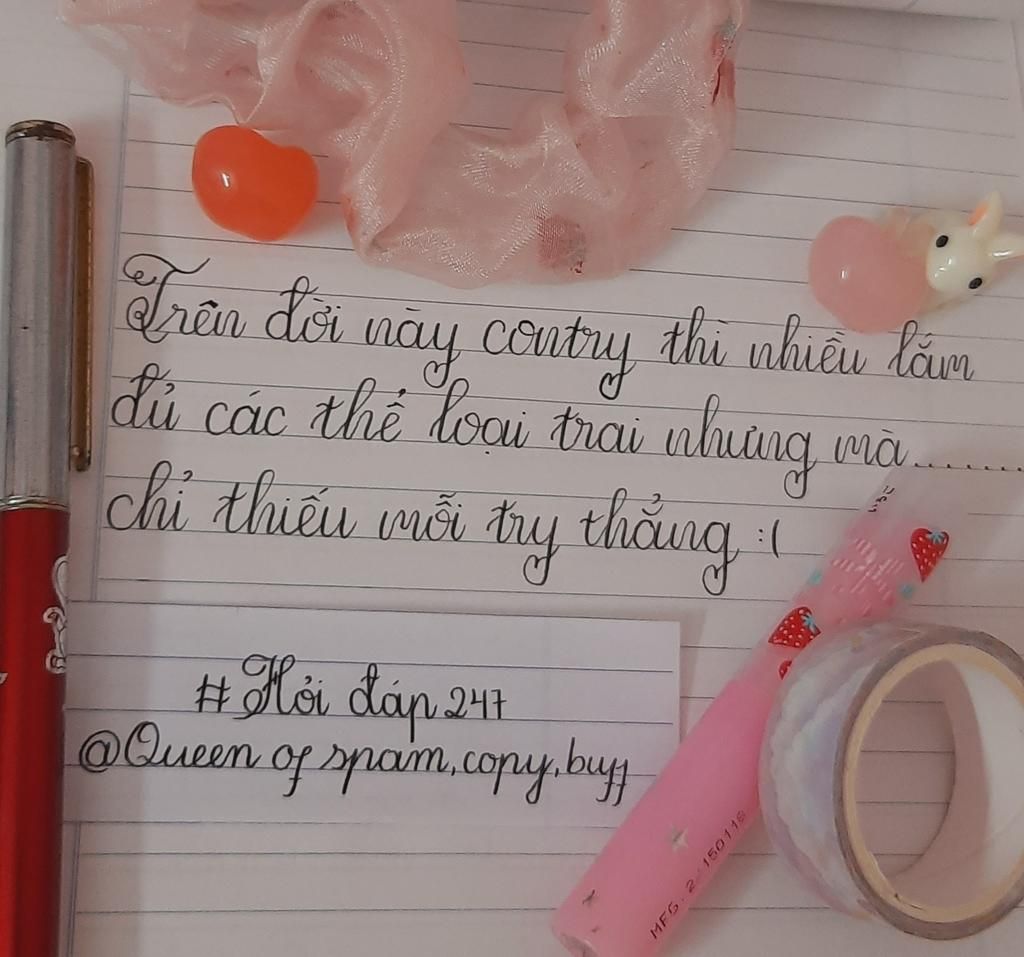 Trên đời này contry thì nhiều lắm
đủ các thể loại trai nhưng mà........
chỉ thiếu mỗi try thẳng :(
#Hỏi đáp 247
@Queen of spam,copy,buff
MFG. 2. 150118